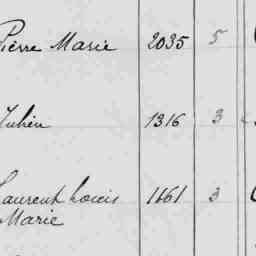 Pierre Marie 2035 5
Julien 1316 3
Laurent Louis 1161 3
Marie